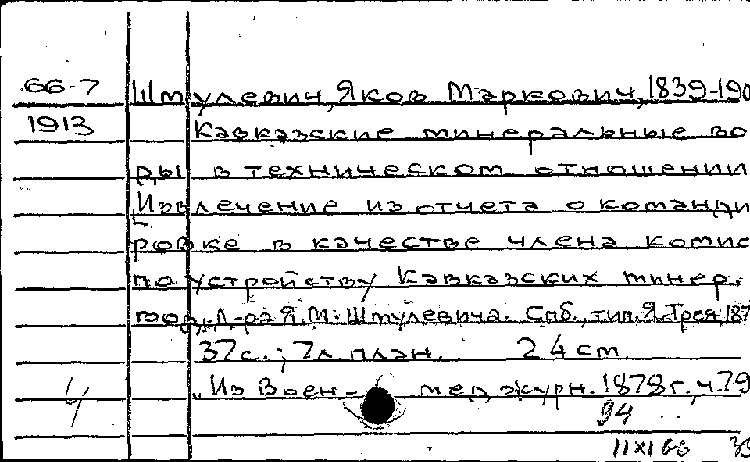 66-7 Шмулевич, Яков Маркович, 1839-190
1913 Кавказские минеральные во
ды в техническом отношении
Извлечение из отчета о команди
ровке в качестве члена комис
по устройству Кавказских минер.
вод, Д-ра Я.М. Шмулевича. Спб., тип. Я. Трея, 187
37 с.; 7 л. план. 24 cm
"Из Воен- мед журн. 1878 г., ч. 79
94
11 XI 66